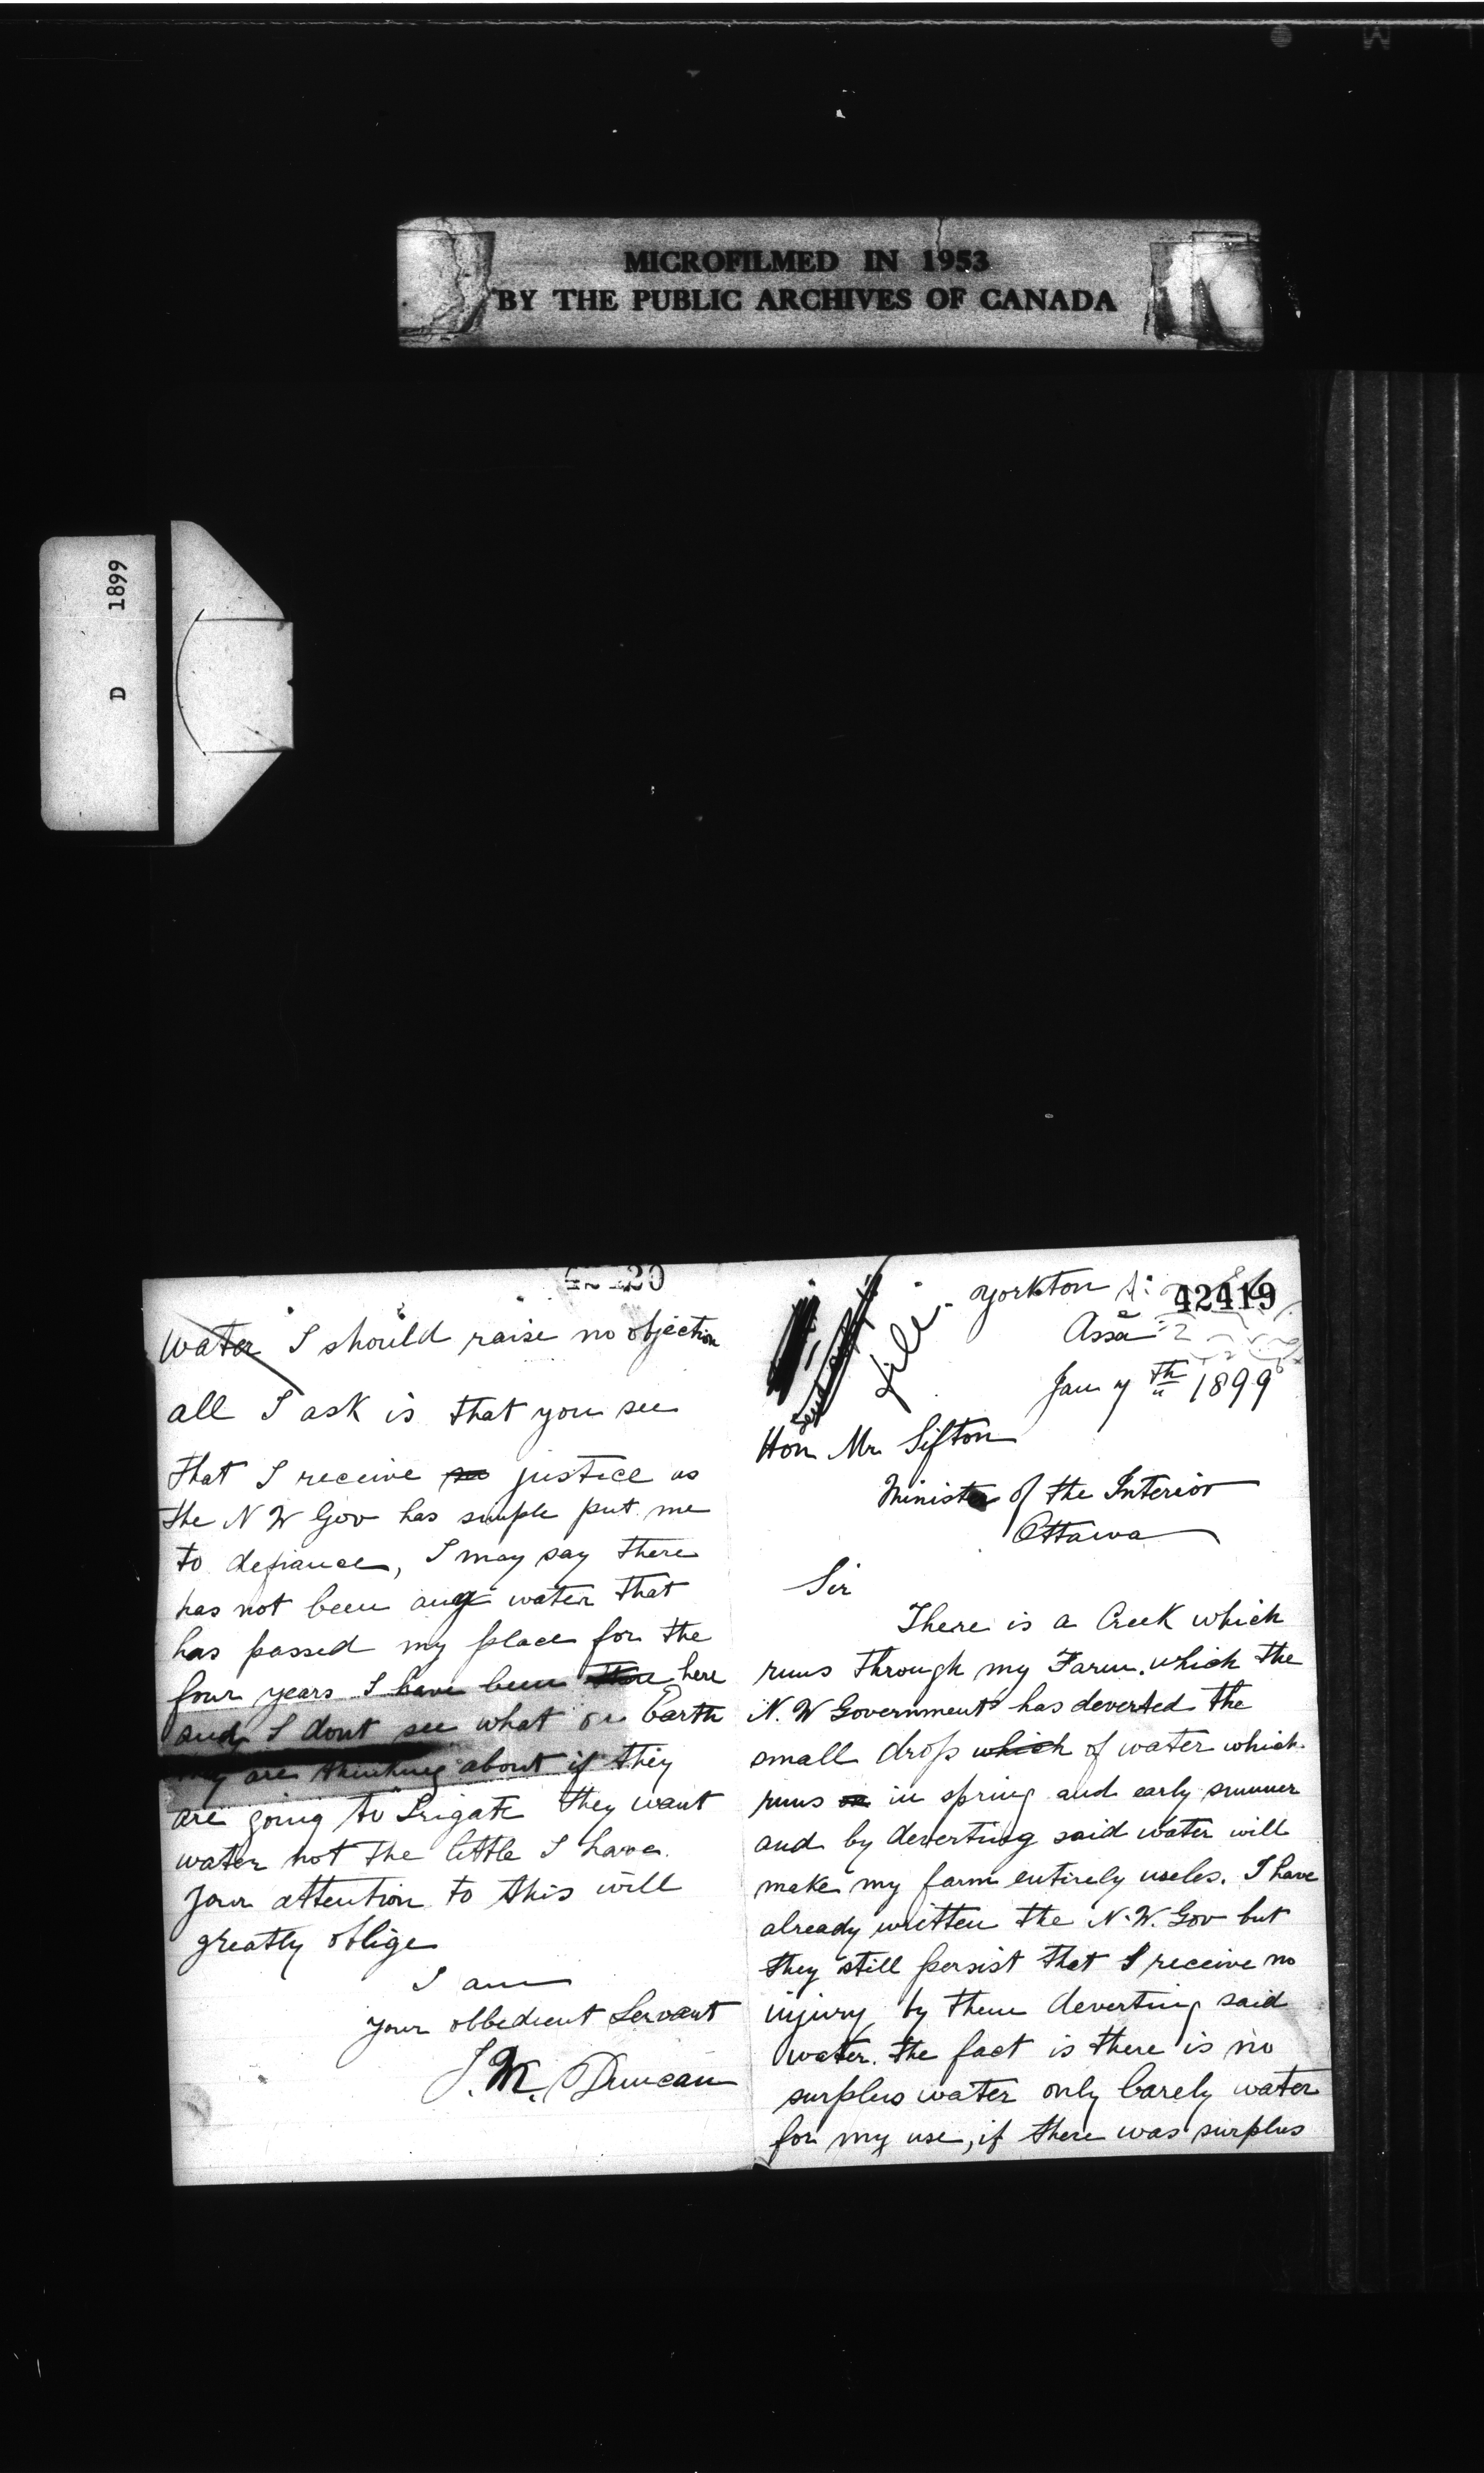 MICROFILMED IN 1953
BY THE PUBLIC ARCHIVES OF CANADA
D 1899
42419
file
Yorkton
Assa
Jan 7th 1899
Hon Mr. Sifton
Minister of the Interior
Ottawa
Sir
There is a Creek which
runs through my Farm. which the
N. W Government has deverted the
small drops which of water which
runs on in spring and early summer
and by deverting said water will
make my farm entirely useles. I have
already written the N.W. Gov but
they still persist that I receive no
injury by them deverting said
water. the fact is there is no
surplus water only barely water
for my use, if there was surplus
water I should raise no objection
all I ask is that you see
that I receive justice as
the N W Gov has simple put me
to defiance, I may say there
has not been any water that
has passed my place for the
four years I have been here
and I dont see what on Earth
they are thinking about if they
are going to Irigate they want
water not the little I have.
your attention to this will
greatly oblige
I am
your obbedient Servant
J. M. Duncan